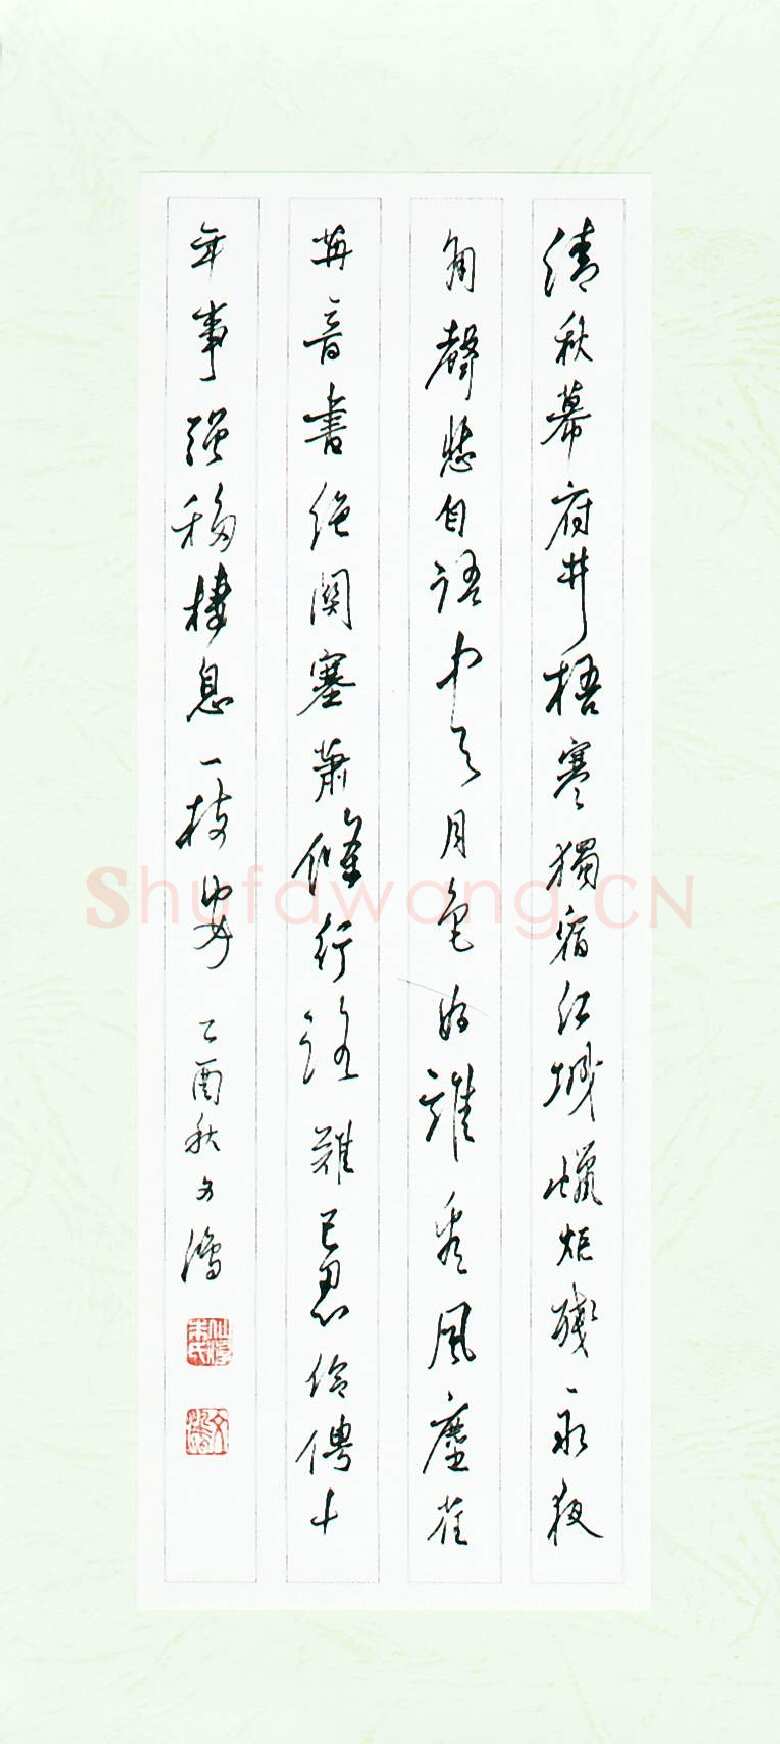 清秋幕府井梧寒獨宿江城蠟炬殘永夜
角聲悲自語中天月色好誰看風塵荏
苒音書絕關塞蕭條行路難已忍伶俜十
年事强移棲息一枝安 乙酉秋文鴻
Shufawang.CN